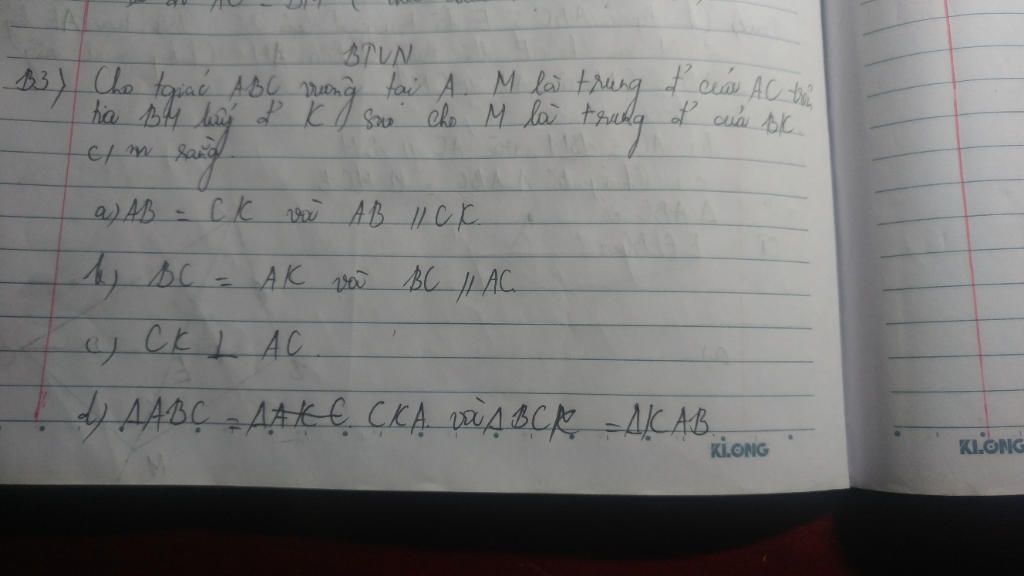 BTVN
B3) Cho tgiác ABC vuông tại A. M là trung đ' của AC trên
tia BM lấy đ' K sao cho M là trung đ' của BK.
c/m rằng.
a) AB = CK và AB // CK.
b) BC = AK và BC // AC.
c) CK ⊥ AC.
d) ΔABC = ΔAKC CKA và ΔBCK = ΔKAB
KLONG
KLONG